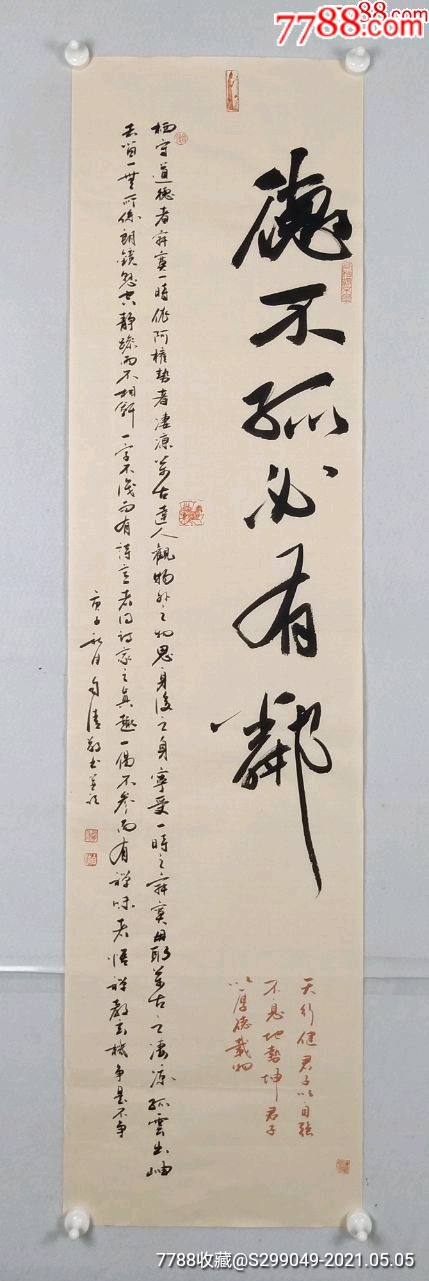 7788.com
7788.com
德不孤必有鄰
天行健君子以自强
不息地勢坤君子
以厚德載物
栖守道德者寂寞一時依阿權勢者凄凉萬古達人觀物外之物思身後之身寧受一時之寂寞毋取萬古之凄凉孤雲出岫
去留一無所係朗鏡懸空静躁兩不相幹一字不識而有詩意者得詩家之真趣一偈不參而有禪味者悟禪教玄機争是不争
庚子秋月清敬書
7788收藏@S299049-2021.05.05